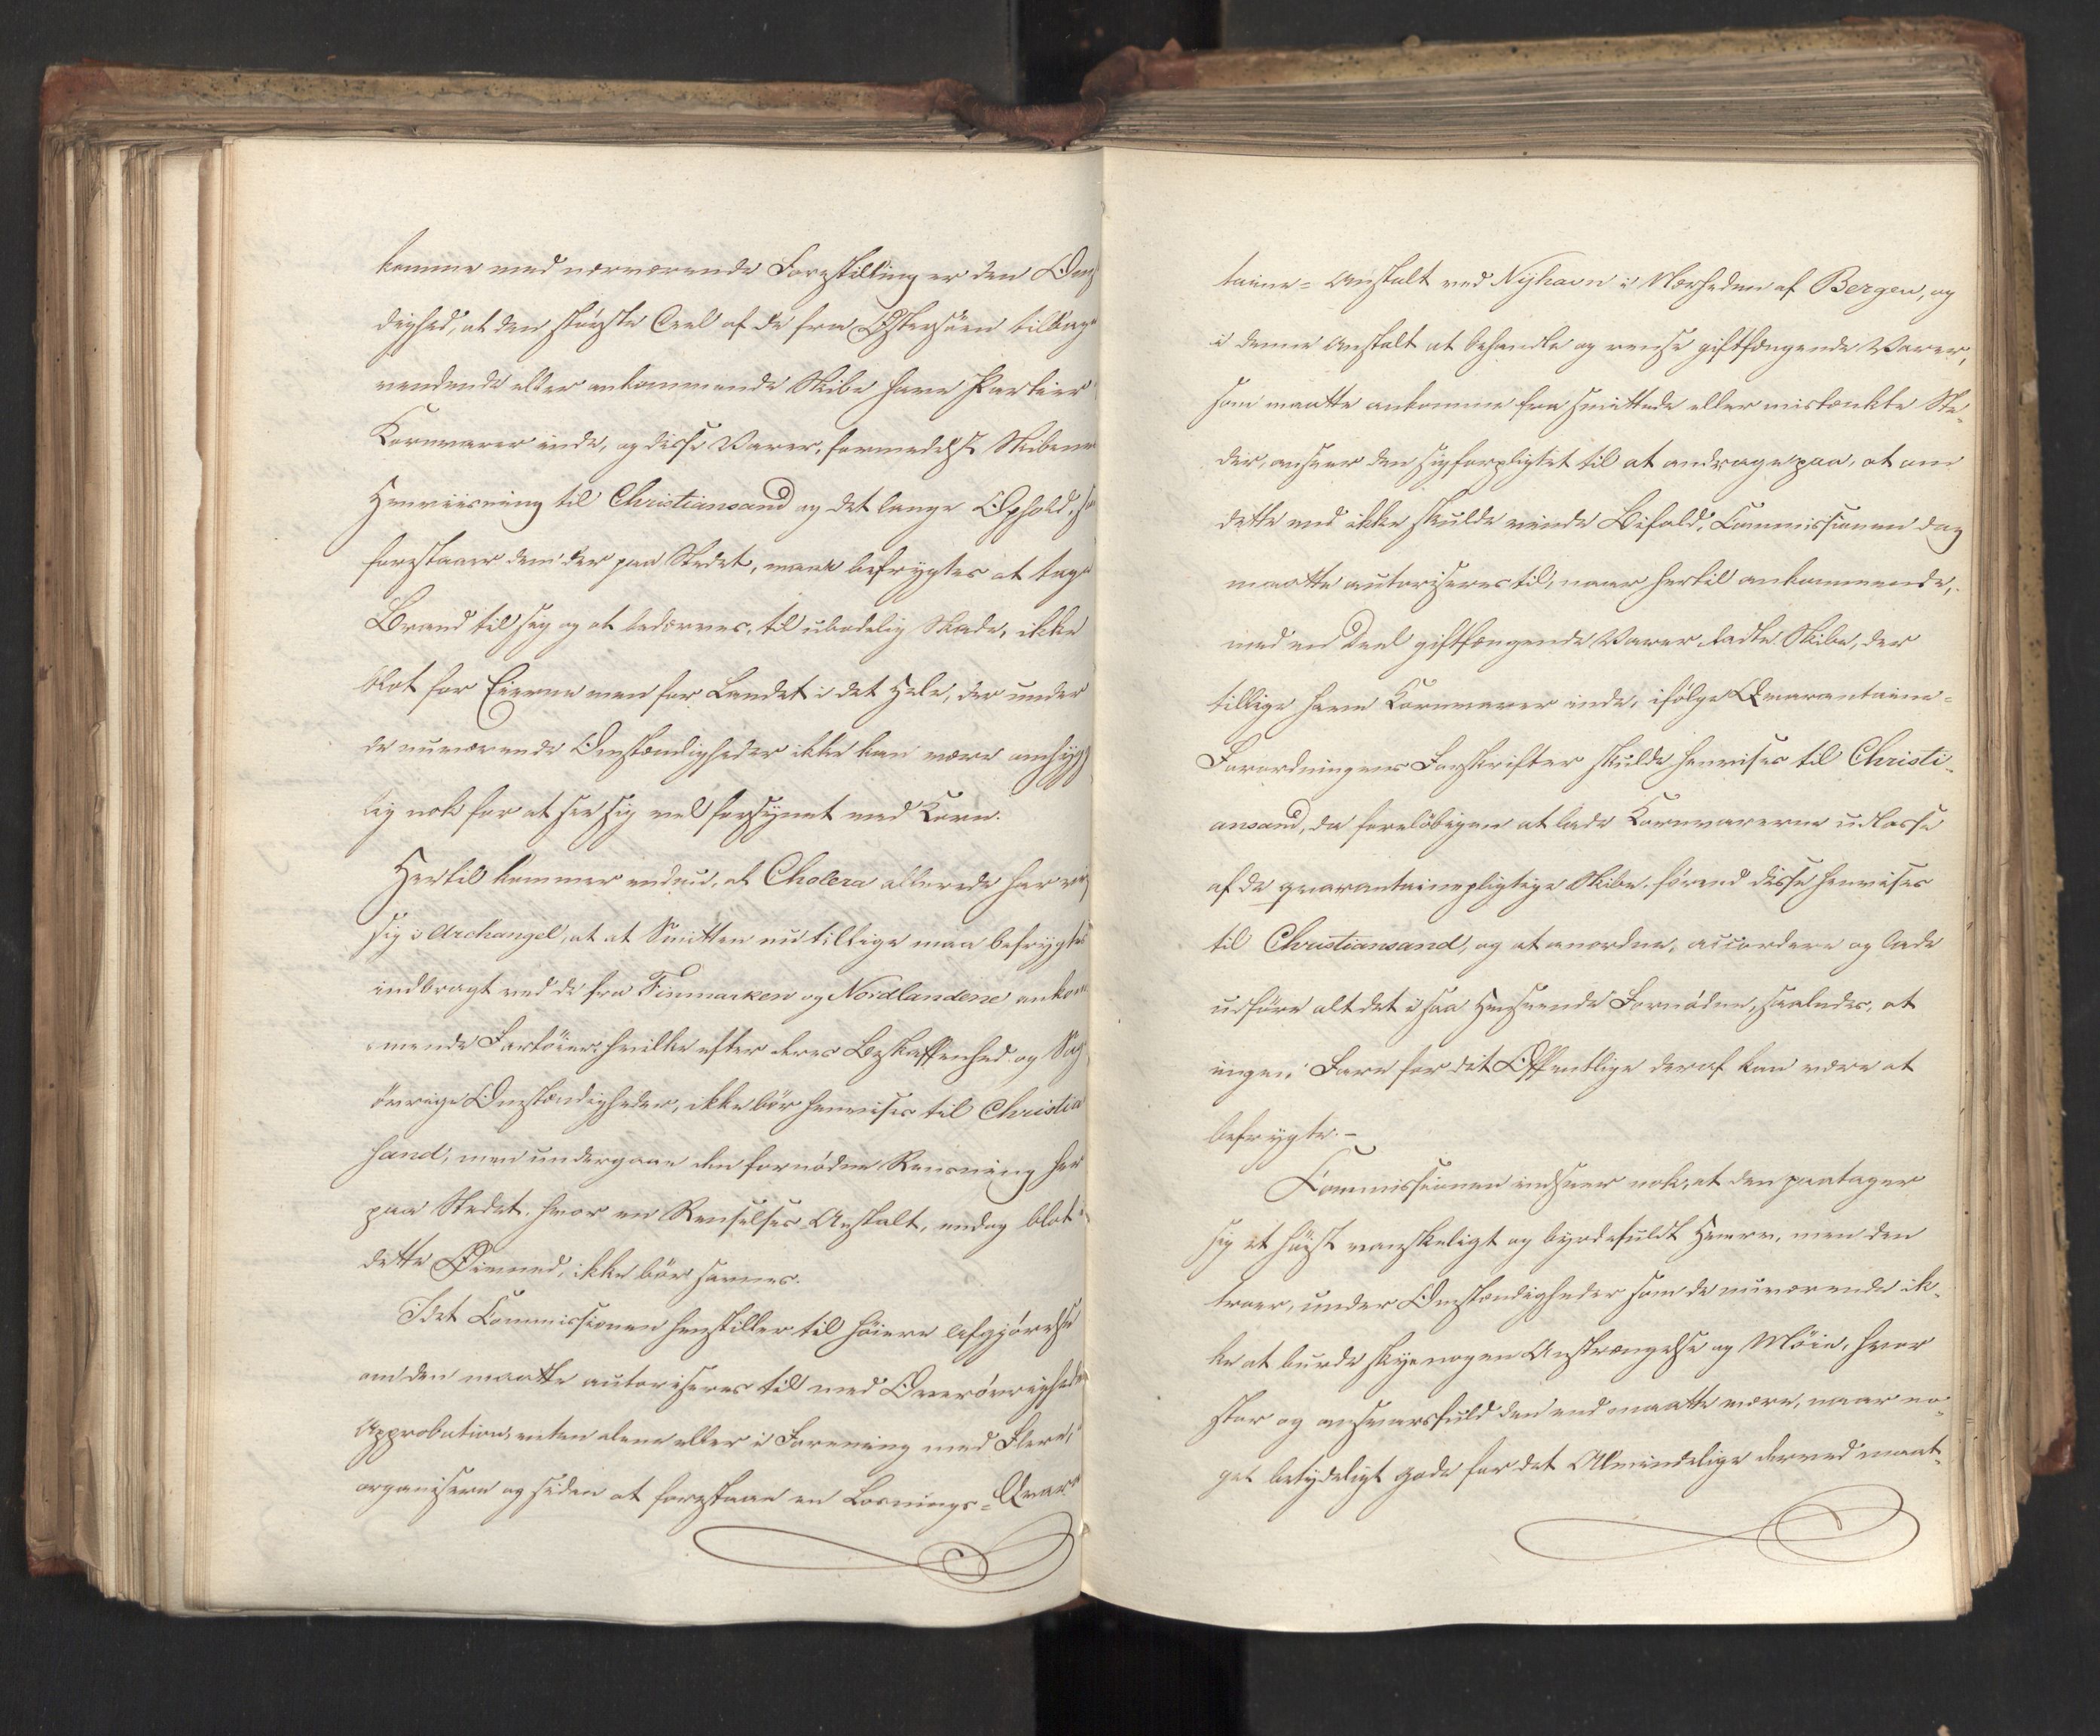 komme med nærværende Forestilling er den Om
dighed, at den største Deel af de fra Østersöen tilbage
vendende eller ankommende Skibe have Partier
Kornvarer inde, og disse Varer, formedelst Skibene
Henviisning til Christiansand og det lange Ophold, s
forestaaer dem der paa Stedet, maae befrygtes at tage
Brand til sig og at bedærves, til ubodelig Skade, ikke
blot for Eierne men for Landet i det Hele, der under
de nuværende Omstændigheder ikke kan være omhygg
lig nok for at see sig vel forsynet med Korn.
Hertil kommer endnu, at Cholera allerede har vi
sig i Archangel, at at Smitten nu tillige maa befrygtes
indbragt ved de fra Finmarken og Nordlandene ankom
mende Fartöier, hvilke efter deres Beskaffenhed og
övrige Omstændigheder, ikke bör henvises til Christia
sand, men undergaae den fornødne Rensning her
paa Stedet, hvor en Renselses-Anstalt, endog blot i
dette Øiemed, ikke bör savnes.
Idet Commissionen henstiller til höiere Afgjörelse
om den maatte autoriseres til med Overövrigheden
Approbation, enten alene eller i Forening med Flere,
organisere og siden at forestaae en Losnings-Qvar
taine-Anstalt ved Nyhavn i Nærheden af Bergen, og
i denne Anstalt at behandle og rense giftfængende Varer,
som maatte ankomme fra smittede eller mistænkte Ste-
der, anseer den sig forpligtet til at andrage paa, at om
dette end ikke skulde vinde Bifald, Commissionen dog
maatte autoriseres til, naar hertil ankommende,
med en Deel giftfængende Varer ladte Skibe, der
tillige have Kornvarer inde, ifölge Qvarantaine-
Forordningens Forskrifter skulde henvises til Christi-
ansand, da forelöbigen at lade Kornvarerne udlosse
af de qvarantainepligtige Skibe, förend disse henvises
til Christiansand, og at anordne, accordere og lade
udföre alt det i saa Henseende Fornödne, saaledes, at
ingen Fare for det Offentlige deraf kan være at
befrygte.-
Commissionen indseer nok, at den paatager
sig et höist vanskeligt og byrdefuldt Hverv, men den
troer, under Omstændigheder som de nuværende ik-
ke at burde skye nogen Anstrængelse og Möie, hvor
stor og ansvarsfuld den end maatte være, naar no-
get betydeligt Gode for det Almindelige derved maat-